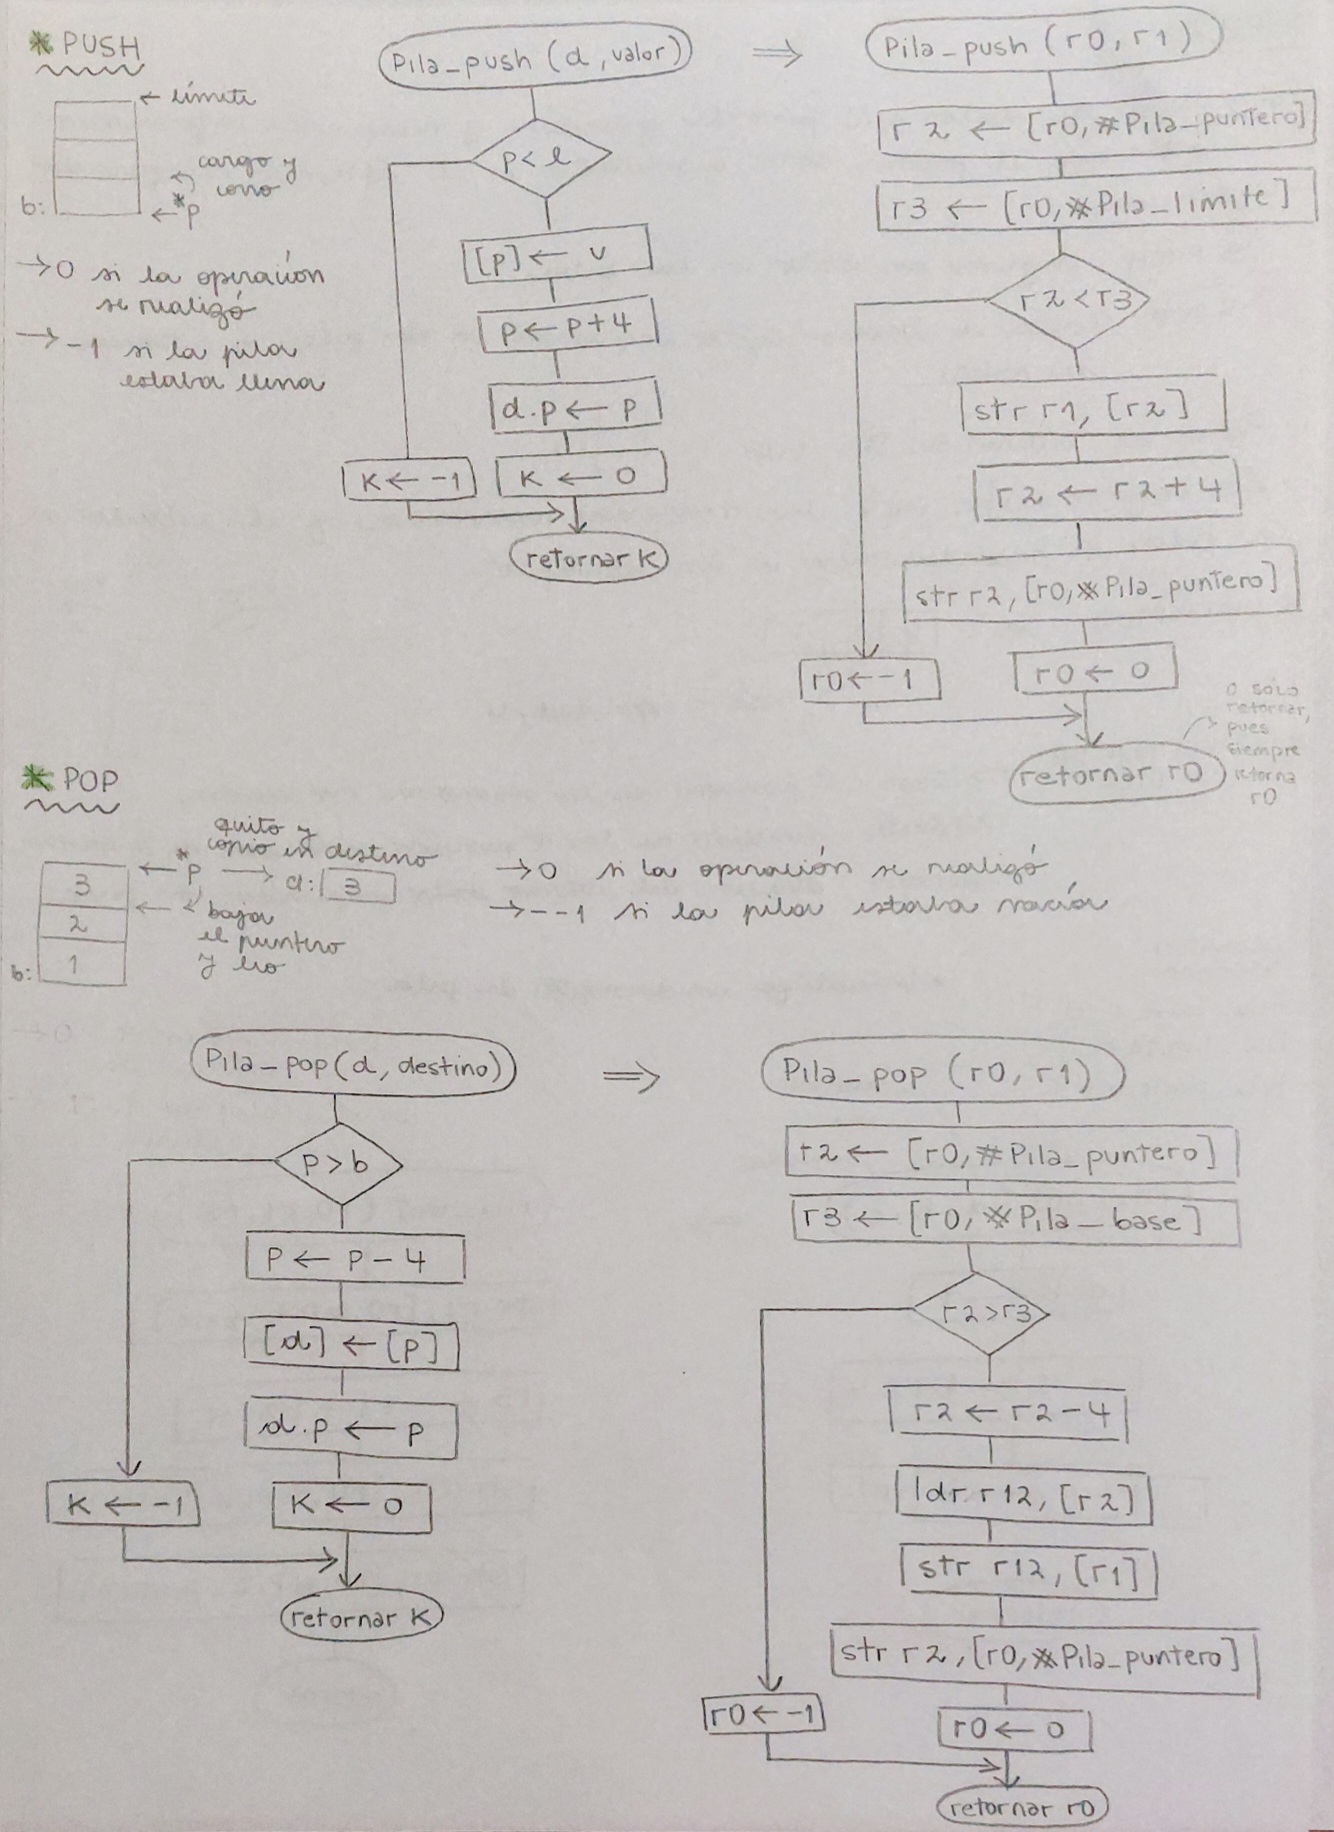 * PUSH
← límite
cargo y
corro
b:
← *p
→ 0 si la operación
se realizó
→ -1 si la pila
estaba llena
Pila_push (d, valor)
p < l
[p] ← v
p ← p + 4
d.p ← p
K ← -1
K ← 0
retornar K
⇒
Pila_push (r0, r1)
r2 ← [r0, #Pila_puntero]
r3 ← [r0, #Pila_limite]
r2 < r3
str r1, [r2]
r2 ← r2 + 4
str r2, [r0, #Pila_puntero]
r0 ← -1
r0 ← 0
retornar r0
o sólo
retornar,
pues
siempre
retorna
r0
* POP
quito y
copio en destino
← *p → d: 3
3
2
b: 1
← baja
el puntero
y leo
→ 0 si la operación se realizó
→ -1 si la pila estaba vacía
Pila_pop(d, destino)
p > b
p ← p - 4
[d] ← [p]
d.p ← p
K ← -1
K ← 0
retornar K
⇒
Pila_pop (r0, r1)
r2 ← [r0, #Pila_puntero]
r3 ← [r0, #Pila_base]
r2 > r3
r2 ← r2 - 4
ldr r12, [r2]
str r12, [r1]
str r2, [r0, #Pila_puntero]
r0 ← -1
r0 ← 0
retornar r0